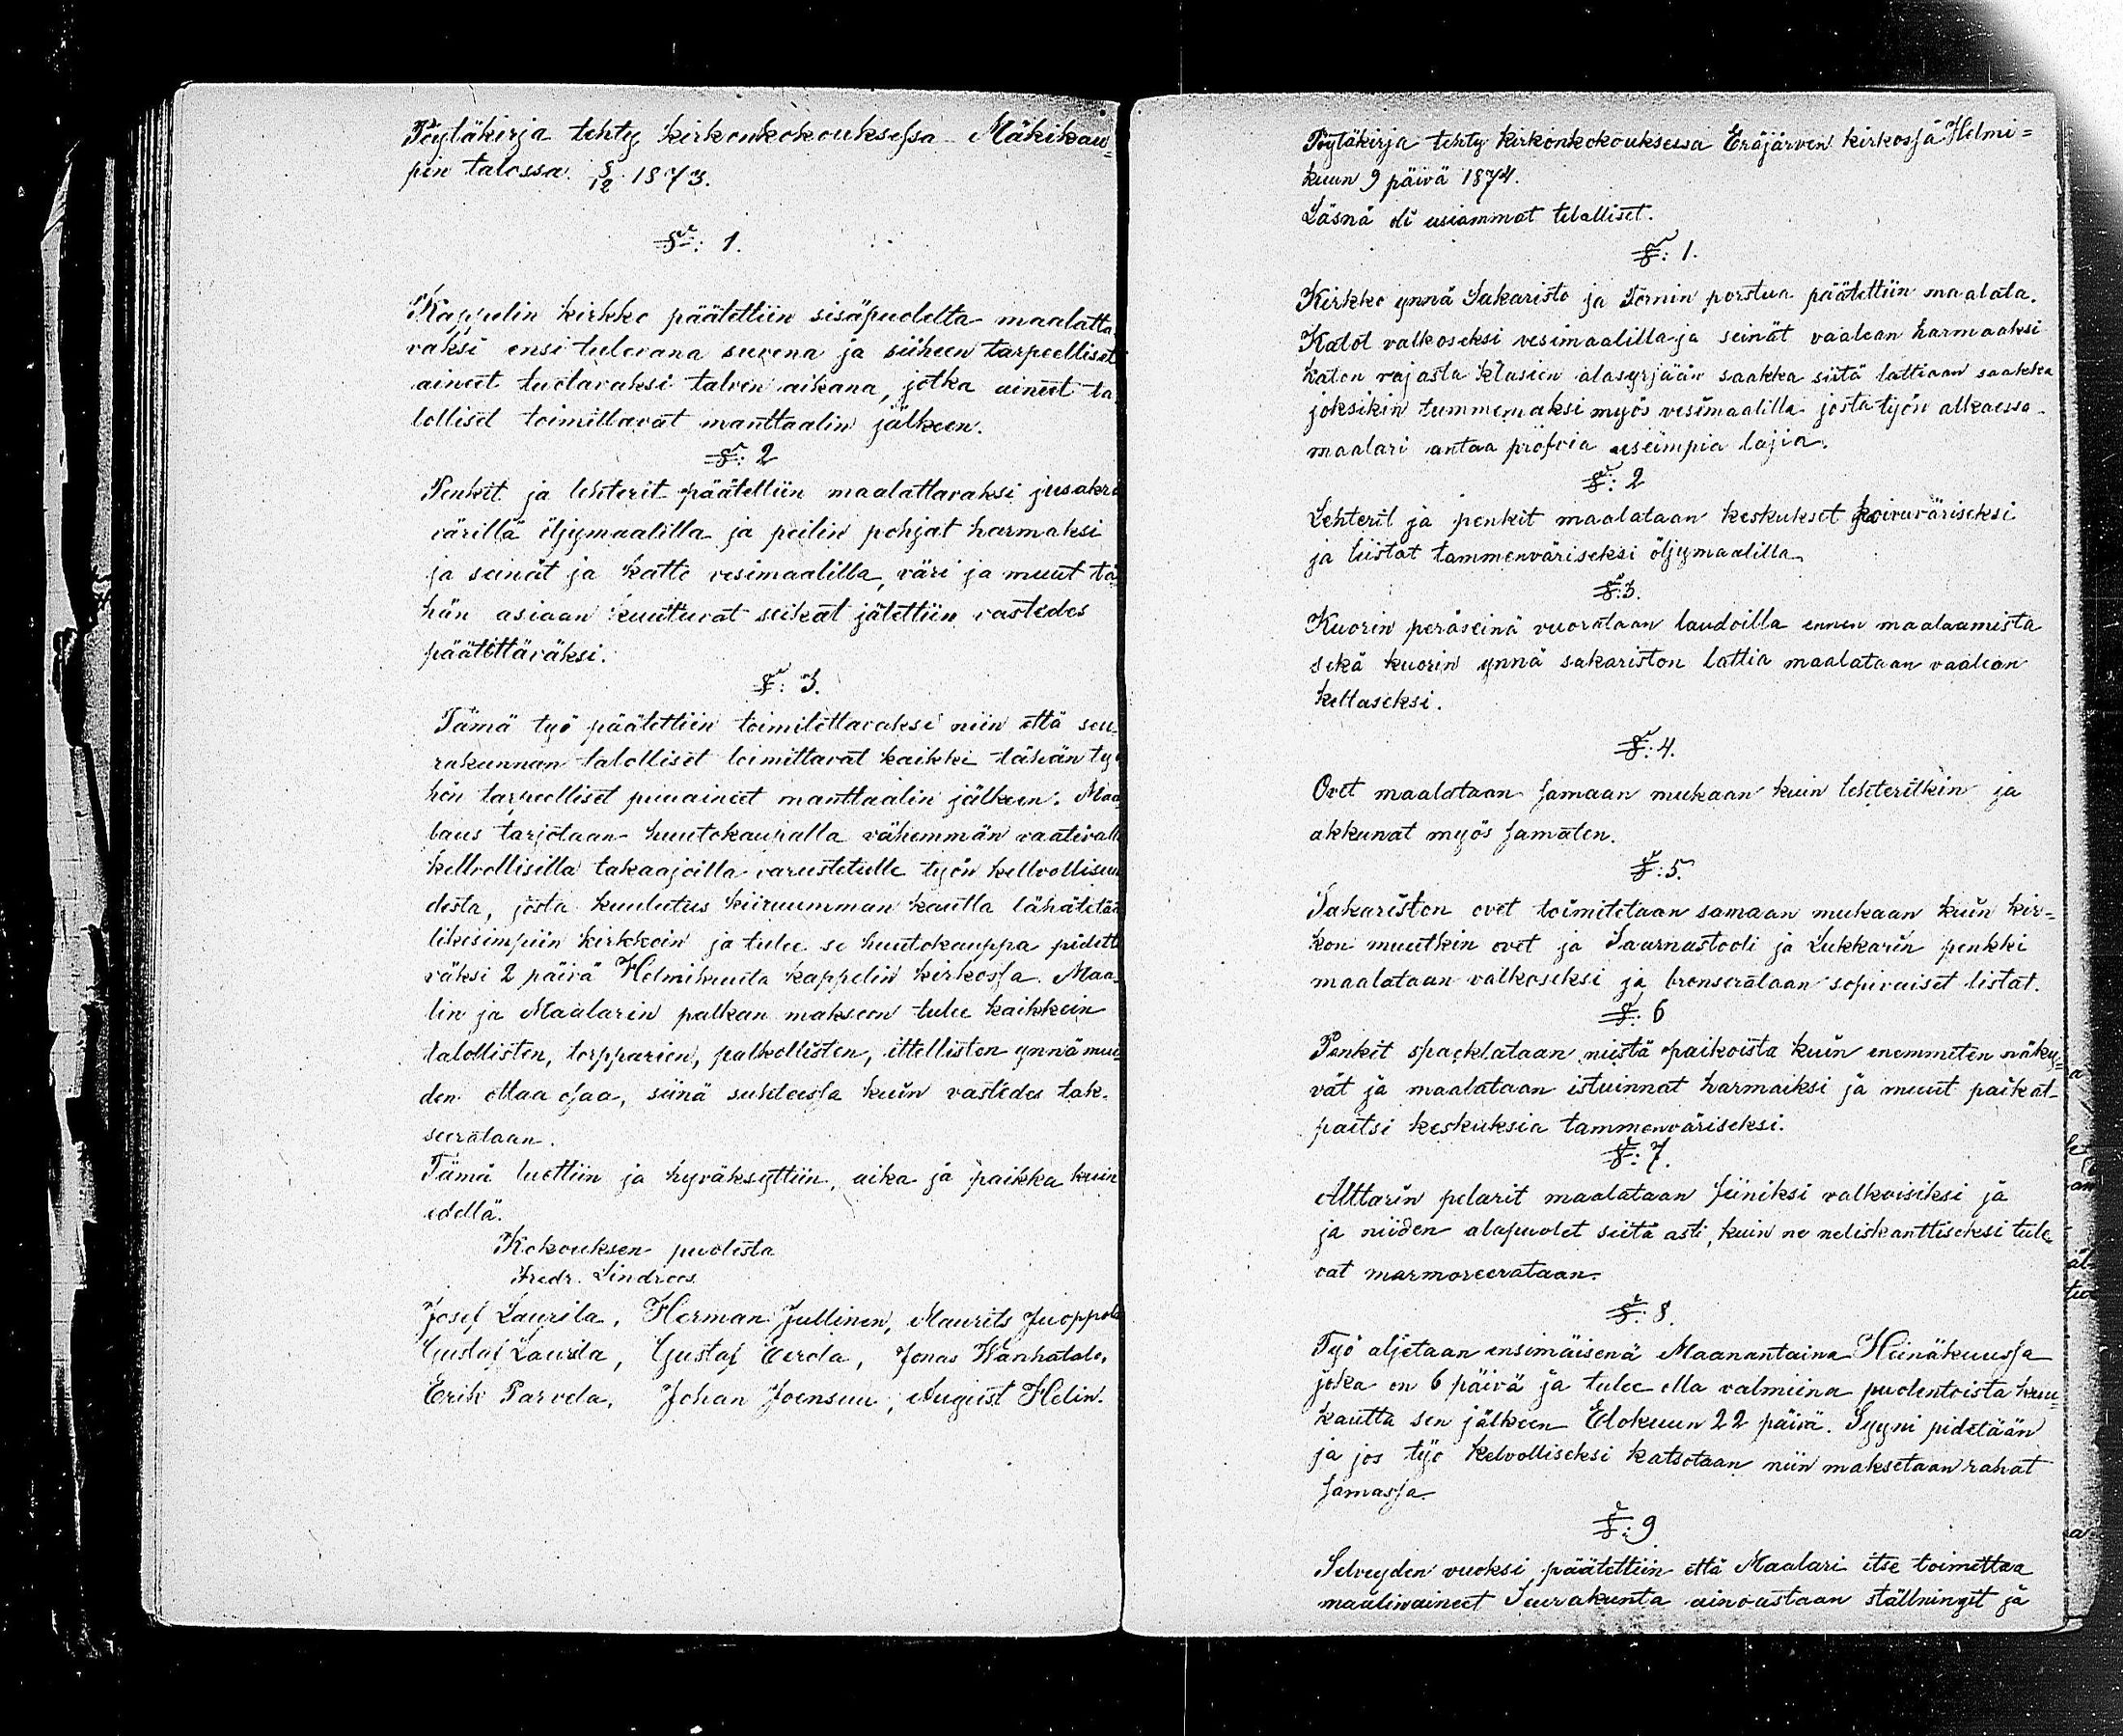 Pöytäkirja tehty kirkonkokouksessa Mäkikau=
pin talossa 8/12 1873.
§: 1.
Kappelin kirkko päätettiin sisäpuolelta maalatta
vaksi ensi tulevana suvena ja siiheen tarpeelliset
aineet tuotavaksi talven aikana, jotka aineet ta
lolliset toimittavat manttaalin jälkeen.
§: 2
Penkit ja lehterit päätettiin maalattavaksi
värillä öljymaalilla ja peilin pohjat harmaksi
ja seinät ja katto vesimaalilla, väri ja muut tä
hän asiaan kuuluvat seikat jätettiin vastedes
päätettäväksi.
§: 3.
Tämä työ päätettiin toimitettavaksi niin että seu-
rakunnan talolliset toimittavat kaikki tähän työ
hön tarpeelliset puuaineet manttaalin jälkeen. Maa
laus tarjotaan huutokaupalla vähemmän vaativalle
kelvollisilla takaajoilla varustetulle työn kelvollisuu
desta, josta kuulutus kiiruumman kautta lähätetää
likisimpiin kirkkoin ja tulee se huutokauppa pidett
väksi 2 päivä Helmikuuta kappelin kirkossa. Maa
lin ja Maalarin palkan maksoon tulee kaikkein
talollisten, torpparien, palkollisten, ittellisten ynnä mui
den ottaa osaa, siinä suhteessa kuin vastedes tak-
seerataan.
Tämä luettiin ja hyväksyttiin, aika ja paikka kuin
edellä.
Kokouksen puolesta
Fredr. Lindroos.
Josef Laurila, Herman Jullinen, Maurits Juoppola
Gustaf Laurila, Gustaf Eerola, Jonas Wanhatalo,
Erik Parvela, Johan Joensuu, August Helin.
Pöytäkirja tehty kirkonkokouksessa Eräjärven kirkossa Helmi=
kuun 9 päivä 1874.
Läsnä oli usiammat tilalliset.
§: 1.
Kirkko ynnä Sakaristo ja Tornin porstua päätettiin maalata.
Katot valkoseksi vesimaalilla ja seinät vaalean harmaaksi
katon rajasta klasien alasyrjään saakka siitä lattiaan saakka
joksikin tummemaksi myös vesimaalilla josta työn alkaessa
maalari antaa pröfvia useimpia lajia.
§: 2
Lehterit ja penkit maalataan keskukset koivuväriseksi
ja liistat tammenväriseksi öljymaalilla
§: 3.
Kuorin peräseinä vuorataan laudoilla ennen maalaamista
sekä kuorin ynnä sakariston lattia maalataan vaalean
keltaseksi.
§: 4.
Ovet maalataan samaan mukaan kuin lehteritkin ja
akkunat myös samaten.
§: 5.
Sakariston ovet toimitetaan samaan mukaan kuin kir=
kon muutkin ovet ja Saarnastooli ja Lukkarin penkki
maalataan valkoseksi ja bronserataan sopivaiset listat.
§: 6
Penkit spacklataan niistä paikoista kuin enemmiten näky=
vät ja maalataan istuinnat harmaiksi ja muut paikat
paitsi keskuksia tammenväriseksi.
§: 7.
Alttarin pelarit maalataan siiniksi valkoisiksi ja
ja niiden alapuolet siitä asti, kuin ne neliskanttiseksi tule
vat marmoreerataan.
§: 8.
Työ aljetaan ensimäisenä Maanantaina Heinäkuussa
joka on 6 päivä ja tulee olla valmiina puolentoista kuu=
kautta sen jälkeen Elokuun 22 päivä. Syyni pidetään
ja jos työ kelvolliseksi katsotaan niin maksetaan rahat
samassa.
§: 9
Selveyden vuoksi päätettiin että Maalari itse toimittaa
maalinaineet Seurakunta ainoastaan ställningit ja